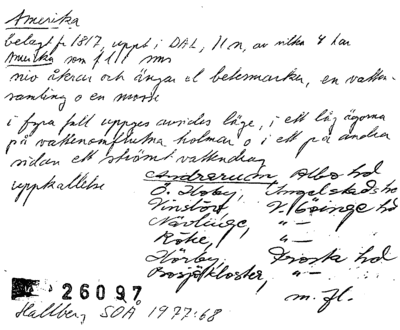 Amerika
belagt fr 1817, uppt i DAL, 11 n, av vilka 4 har
Amerika som f l i sms
nio åkrar och ängar el betesmarker, en vatten-
samling o en mosse
i fyra fall uppges avsides läge, i ett låg ägorna
på vattenomflutna holmar o i ett på andra
sidan ett strömt vattendrag
uppkallelse
Andrarum, Albo hd
Ö. Hoby, Ingelstads hd
Vinslöv V. Göinge hd
Nävlinge, —"—
Röke, —"—
Hörby, Frosta hd
Bosjökloster, —"—
m. fl.
26097
Hallberg SOÅ 1977:68